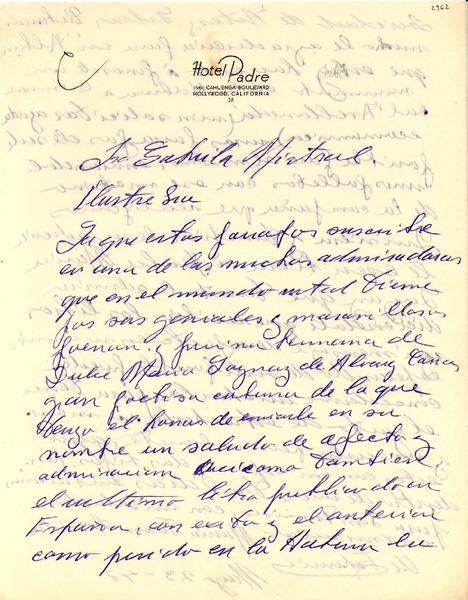 2962
Hotel Padre
1961 CAHUENGA BOULEVARD
HOLLYWOOD, CALIFORNIA
28
Sra Gabriela Mistral.
Ilustre Sra
La que estos garafos suscribe
es una de las muchas admiradoras
que en el mundo usted tiene
por sus geniales y maravillosos
poemas y prima hermana de
Dulce Maria Loynaz de Alvarez Cañas
gran poetisa cubana de la que
tengo el honor de enviarle en su
nombre un saludo de afecto y
admiracion asi como tambien,
el ultimo libro publicado en
España, con exito y el anterior
como pedido en la Habana le